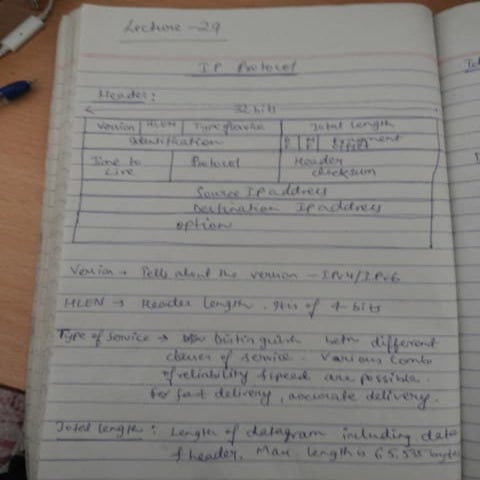 Lecture - 29
IP Protocol
Header:
32 bits
Version HLEN Type of service Total length
Identification D M Fragment offset
Time to Live Protocol Header checksum
Source IP address
Destination IP address
option
Version → Tells about the version - IPv4/IPv6
HLEN → Header length. It is of 4 bits
Type of Service → Distinguish betn different
classes of service. Various Comb
of reliability & speed are possible.
for fast delivery, accurate delivery.
Total length: Length of datagram including data
& header. Max. length is 65,535 bytes